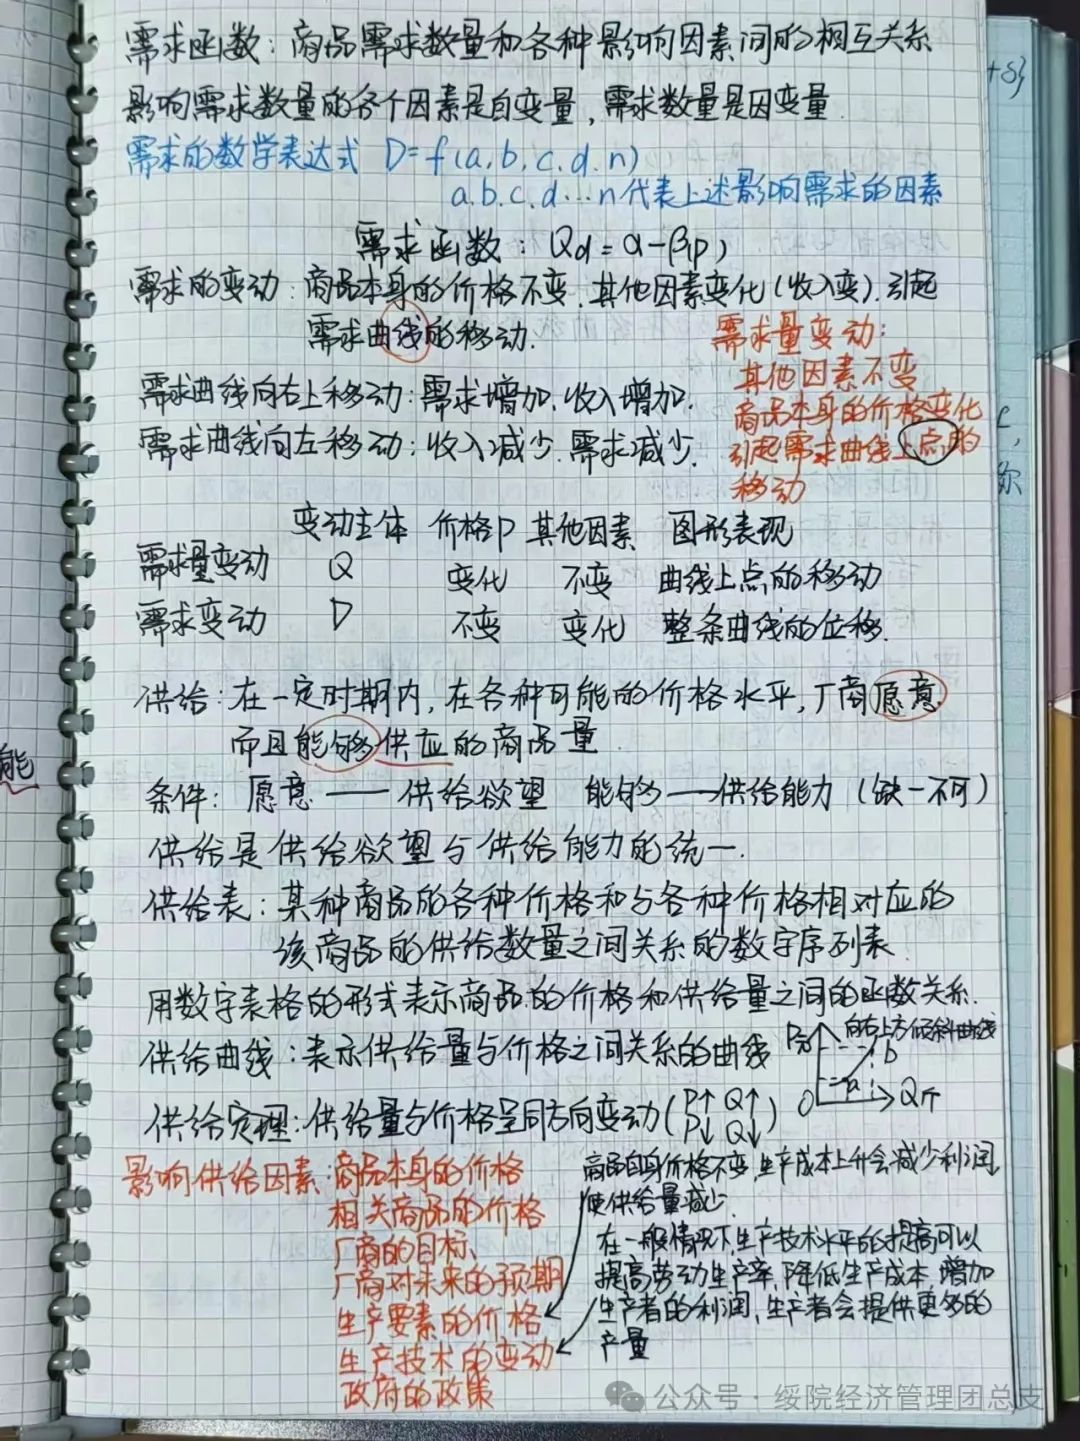 需求函数：商品需求数量和各种影响因素间的相互关系
影响需求数量的各个因素是自变量，需求数量是因变量.
需求的数学表达式 D=f(a.b.c.d.n)
a.b.c.d…n代表上述影响需求的因素
需求函数：Qd=α-β(p)
需求的变动：商品本身的价格不变.其他因素变化(收入变).引起
需求曲线的移动.
需求量变动：
其他因素不变
商品本身的价格变化
引起需求曲线上点的
移动
需求曲线向右上移动：需求增加.收入增加.
需求曲线向左移动：收入减少.需求减少.
变动主体 价格P 其他因素 图形表现
需求量变动 Q 变化 不变 曲线上点的移动
需求变动 D 不变 变化 整条曲线的位移.
供给：在一定时期内，在各种可能的价格水平，厂商愿意
而且能够供应的商品量.
条件：愿意——供给欲望 能够——供给能力（缺一不可）
供给是供给欲望与供给能力的统一.
供给表：某种商品的各种价格和与各种价格相对应的
该商品的供给数量之间关系的数字序列表.
用数字表格的形式表示商品的价格和供给量之间的函数关系.
供给曲线：表示供给量与价格之间关系的曲线
向右上方倾斜曲线
b
a
O
供给定理：供给量与价格呈同方向变动(P↑ Q↑
P↓ Q↓)
影响供给因素：商品本身的价格
相关商品的价格
厂商的目标、
厂商对未来的预期
生产要素的价格
生产技术的变动
政府的政策
商品自身价格不变，生产成本上升会减少利润，
使供给量减少.
在一般情况下，生产技术水平的提高可以
提高劳动生产率，降低生产成本，增加
生产者的利润，生产者会提供更多的
产量
能
+δ}
你
公众号·绥院经济管理团总支